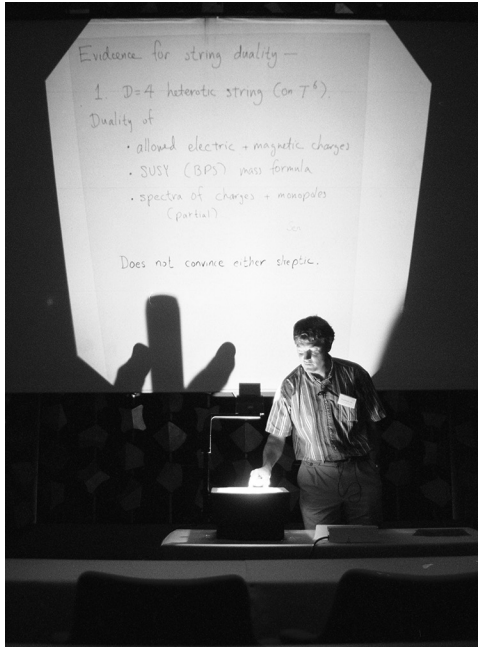 Evidence for string duality —
1. D=4 heterotic string (on T⁶).
Duality of
• allowed electric + magnetic charges
• SUSY (BPS) mass formula
• spectra of charges + monopoles
(partial)
Does not convince either skeptic.